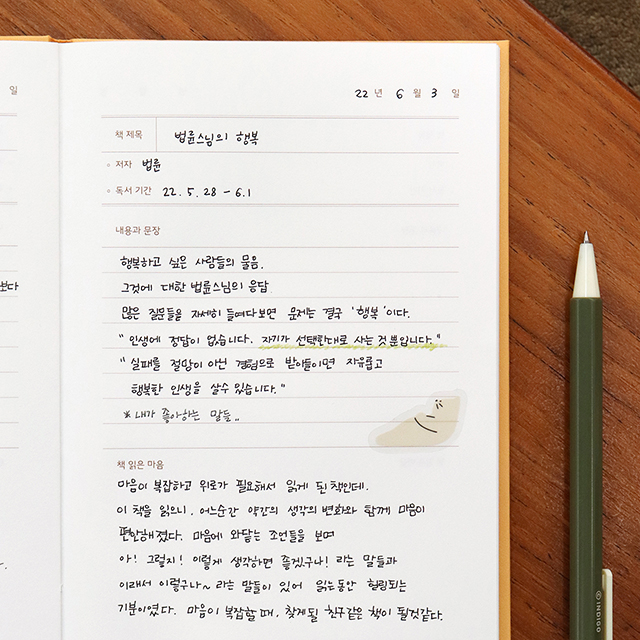 일
22 년 6 월 3 일
책 제목 법륜스님의 행복
저자 법륜
독서 기간 22. 5. 28 - 6.1
내용과 문장
행복하고 싶은 사람들의 물음.
보다
그것에 대한 법륜스님의 응답.
많은 질문들을 자세히 들여다보면 문제는 결국 '행복'이다.
"인생에 정답이 없습니다. 자기가 선택한대로 사는 것 뿐입니다."
"실패를 절망이 아닌 경험으로 받아들이면 자유롭고
행복한 인생을 살수 있습니다."
*내가 좋아하는 말들..
책 읽은 마음
마음이 복잡하고 위로가 필요해서 읽게 된 책인데.
이 책을 읽으니, 어느순간 약간의 생각의 변화와 함께 마음이
편안해졌다. 마음에 와닿는 조언들을 보며
아! 그렇지! 이렇게 생각하면 좋겠구나! 라는 말들과
이래서 이렇구나~ 라는 말들이 있어 읽는동안 힐링되는
기분이였다. 마음이 복잡할 때, 찾게될 친구같은 책이 될것같다.
INDIGO